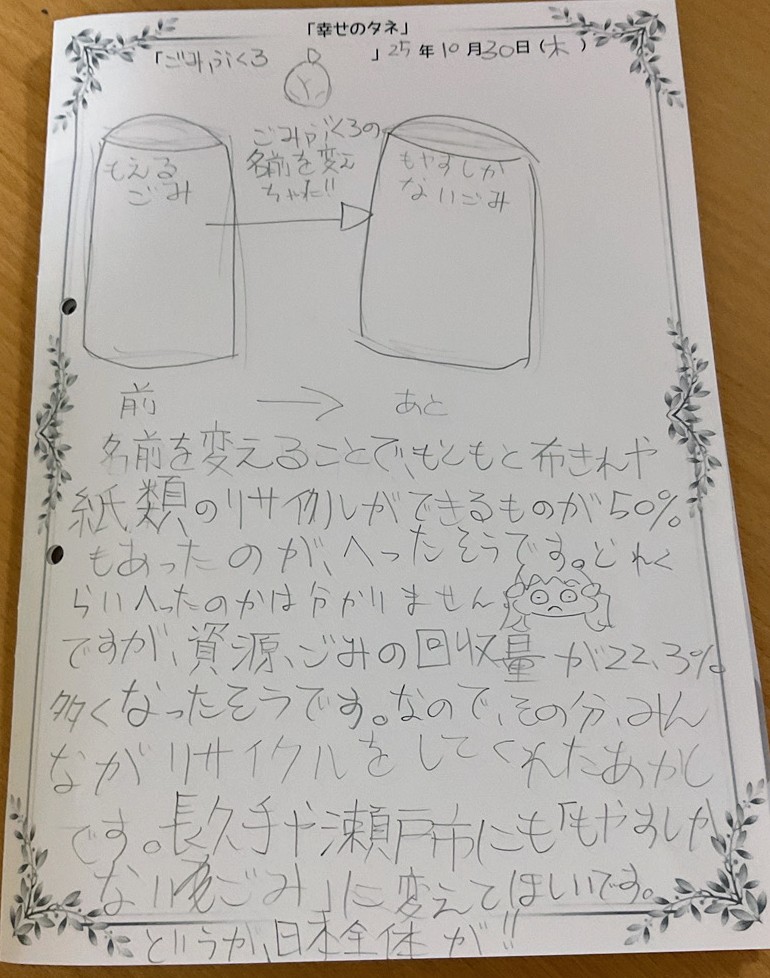 「幸せのタネ」
「ごみぶくろ 」25年10月30日(木)
もえる
ごみ
ごみぶくろの
名前を変え
ちゃた!!
もやすしか
ないごみ
前
あと
名前を変えることで、もともと布きれや
紙類のリサイクルができるものが50%
もあったのが、へったそうです。どれく
らいへったのかは分かりません
ですが、資源、ごみの回収量が22.3%
多くなったそうです。なので、その分、みん
ながリサイクルをしてくれたあかし
です。長久手や瀬戸市にも「もやすしか
ないごみ」に変えてほしいです。
というか、日本全体が!!